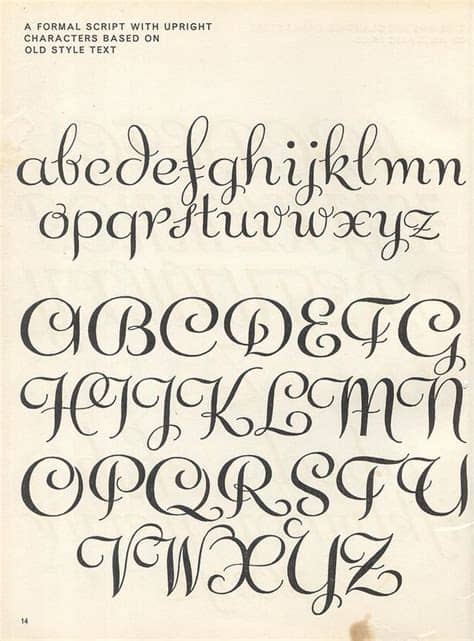 A FORMAL SCRIPT WITH UPRIGHT
CHARACTERS BASED ON
OLD STYLE TEXT
abcdefghijklmn
opqrstuvwxyz
ABCDEFG
HIJKLMN
OPQRSTU
VWXYZ
14